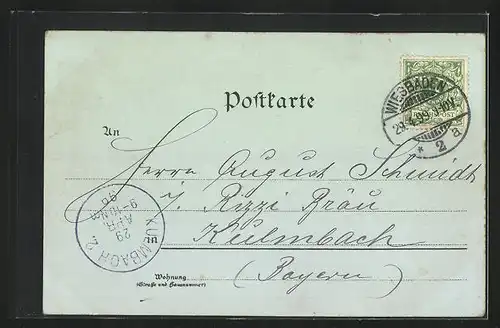 Postkarte
WIESBADEN
29.4.99. 9-10V.
* 2 a
An
Herrn August Schmidt
i/ Rizzi Bräu
Kulmbach
(Bayern)
KULMBACH 2.
29
APR
9-10
99
Wohnung
(Straße und Hausnummer)